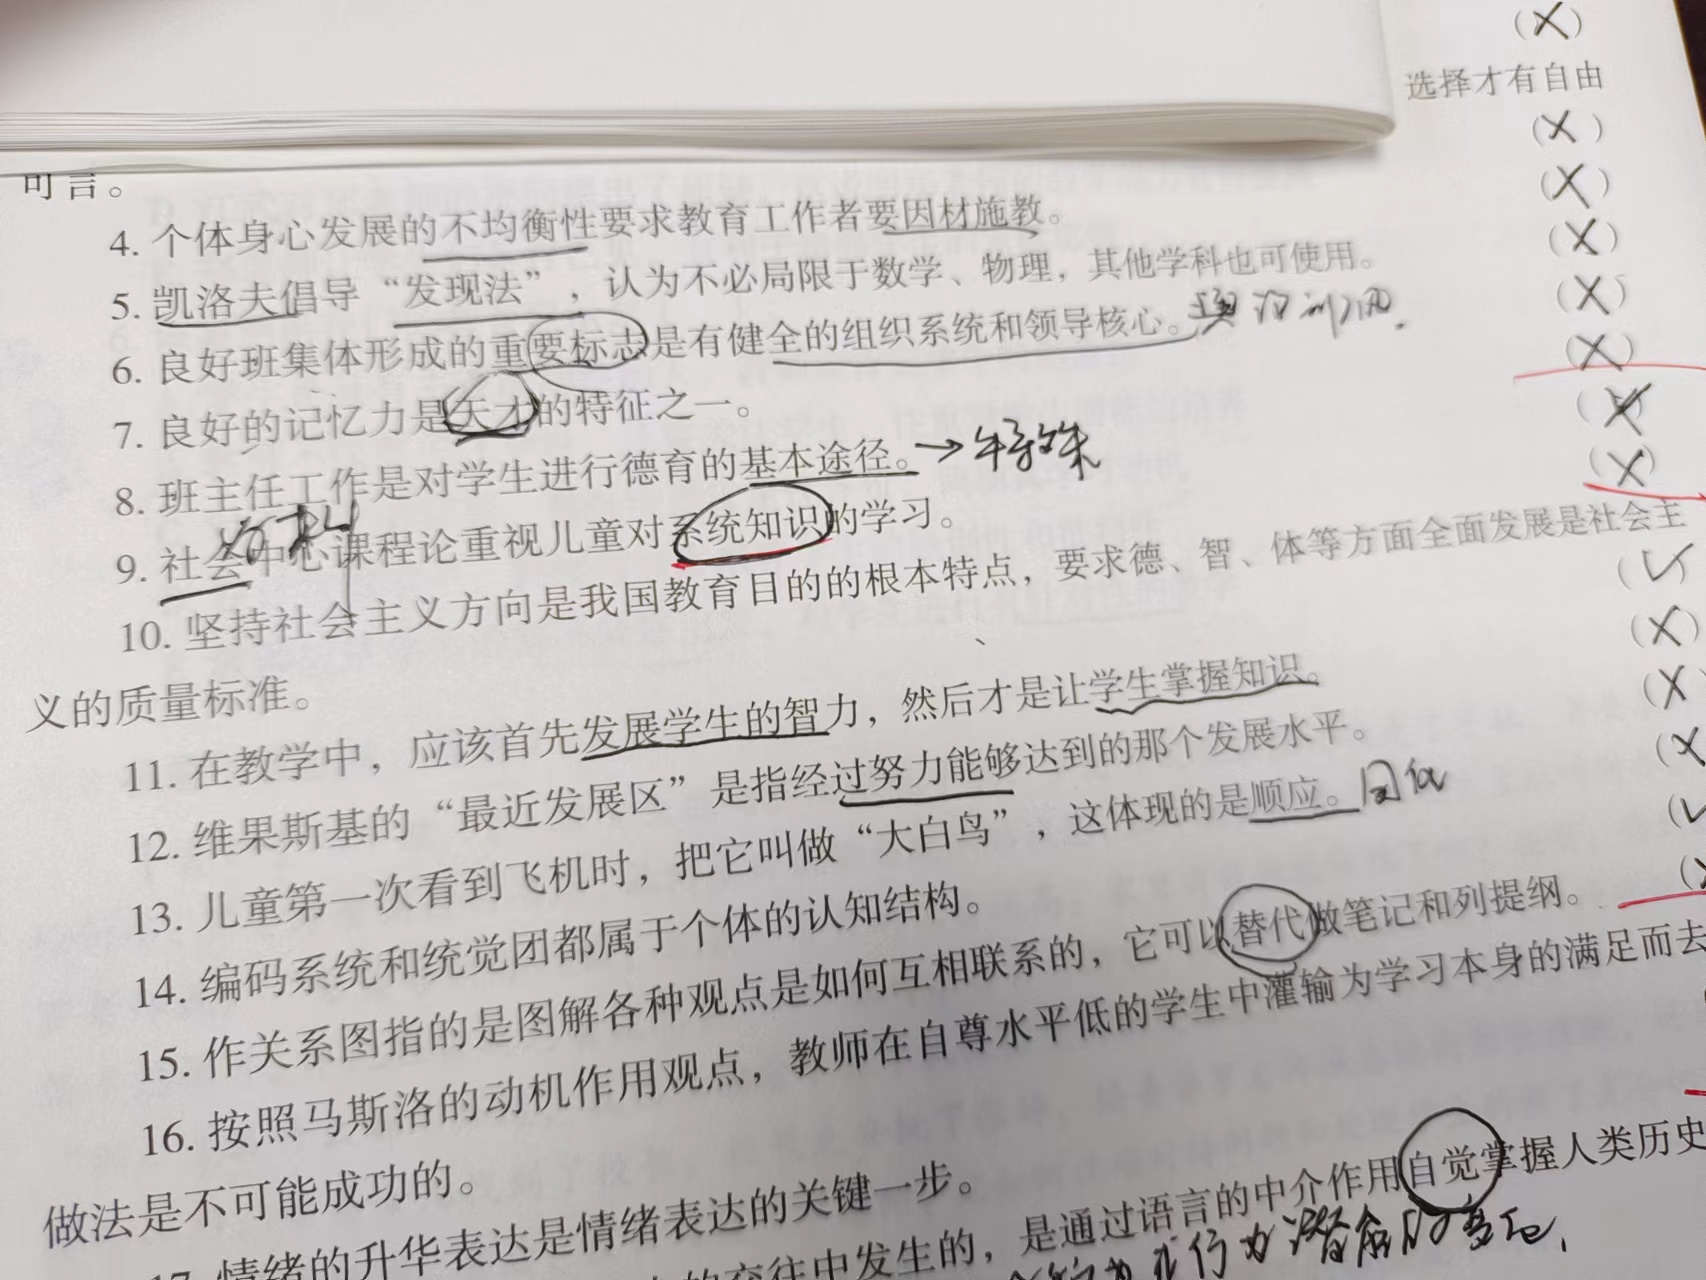 (×)
选择才有自由
(×)
可言。
(×)
4. 个体身心发展的不均衡性要求教育工作者要因材施教。
(×)
5. 凯洛夫倡导“发现法”，认为不必局限于数学、物理，其他学科也可使用。
(×)
6. 良好班集体形成的重要标志是有健全的组织系统和领导核心。
(×)
7. 良好的记忆力是天才的特征之一。
(×)
8. 班主任工作是对学生进行德育的基本途径。→特殊
(×)
9. 社会中心课程论重视儿童对系统知识的学习。
学科
10. 坚持社会主义方向是我国教育目的的根本特点，要求德、智、体等方面全面发展是社会主
义的质量标准。
(✓)
11. 在教学中，应该首先发展学生的智力，然后才是让学生掌握知识。
(×)
12. 维果斯基的“最近发展区”是指经过努力能够达到的那个发展水平。
(×)
13. 儿童第一次看到飞机时，把它叫做“大白鸟”，这体现的是顺应。同化
(×
14. 编码系统和统觉团都属于个体的认知结构。
(✓
15. 作关系图指的是图解各种观点是如何互相联系的，它可以替代做笔记和列提纲。
(×
16. 按照马斯洛的动机作用观点，教师在自尊水平低的学生中灌输为学习本身的满足而去
做法是不可能成功的。
17. 情绪的升华表达是情绪表达的关键一步。
的交往中发生的，是通过语言的中介作用自觉掌握人类历史